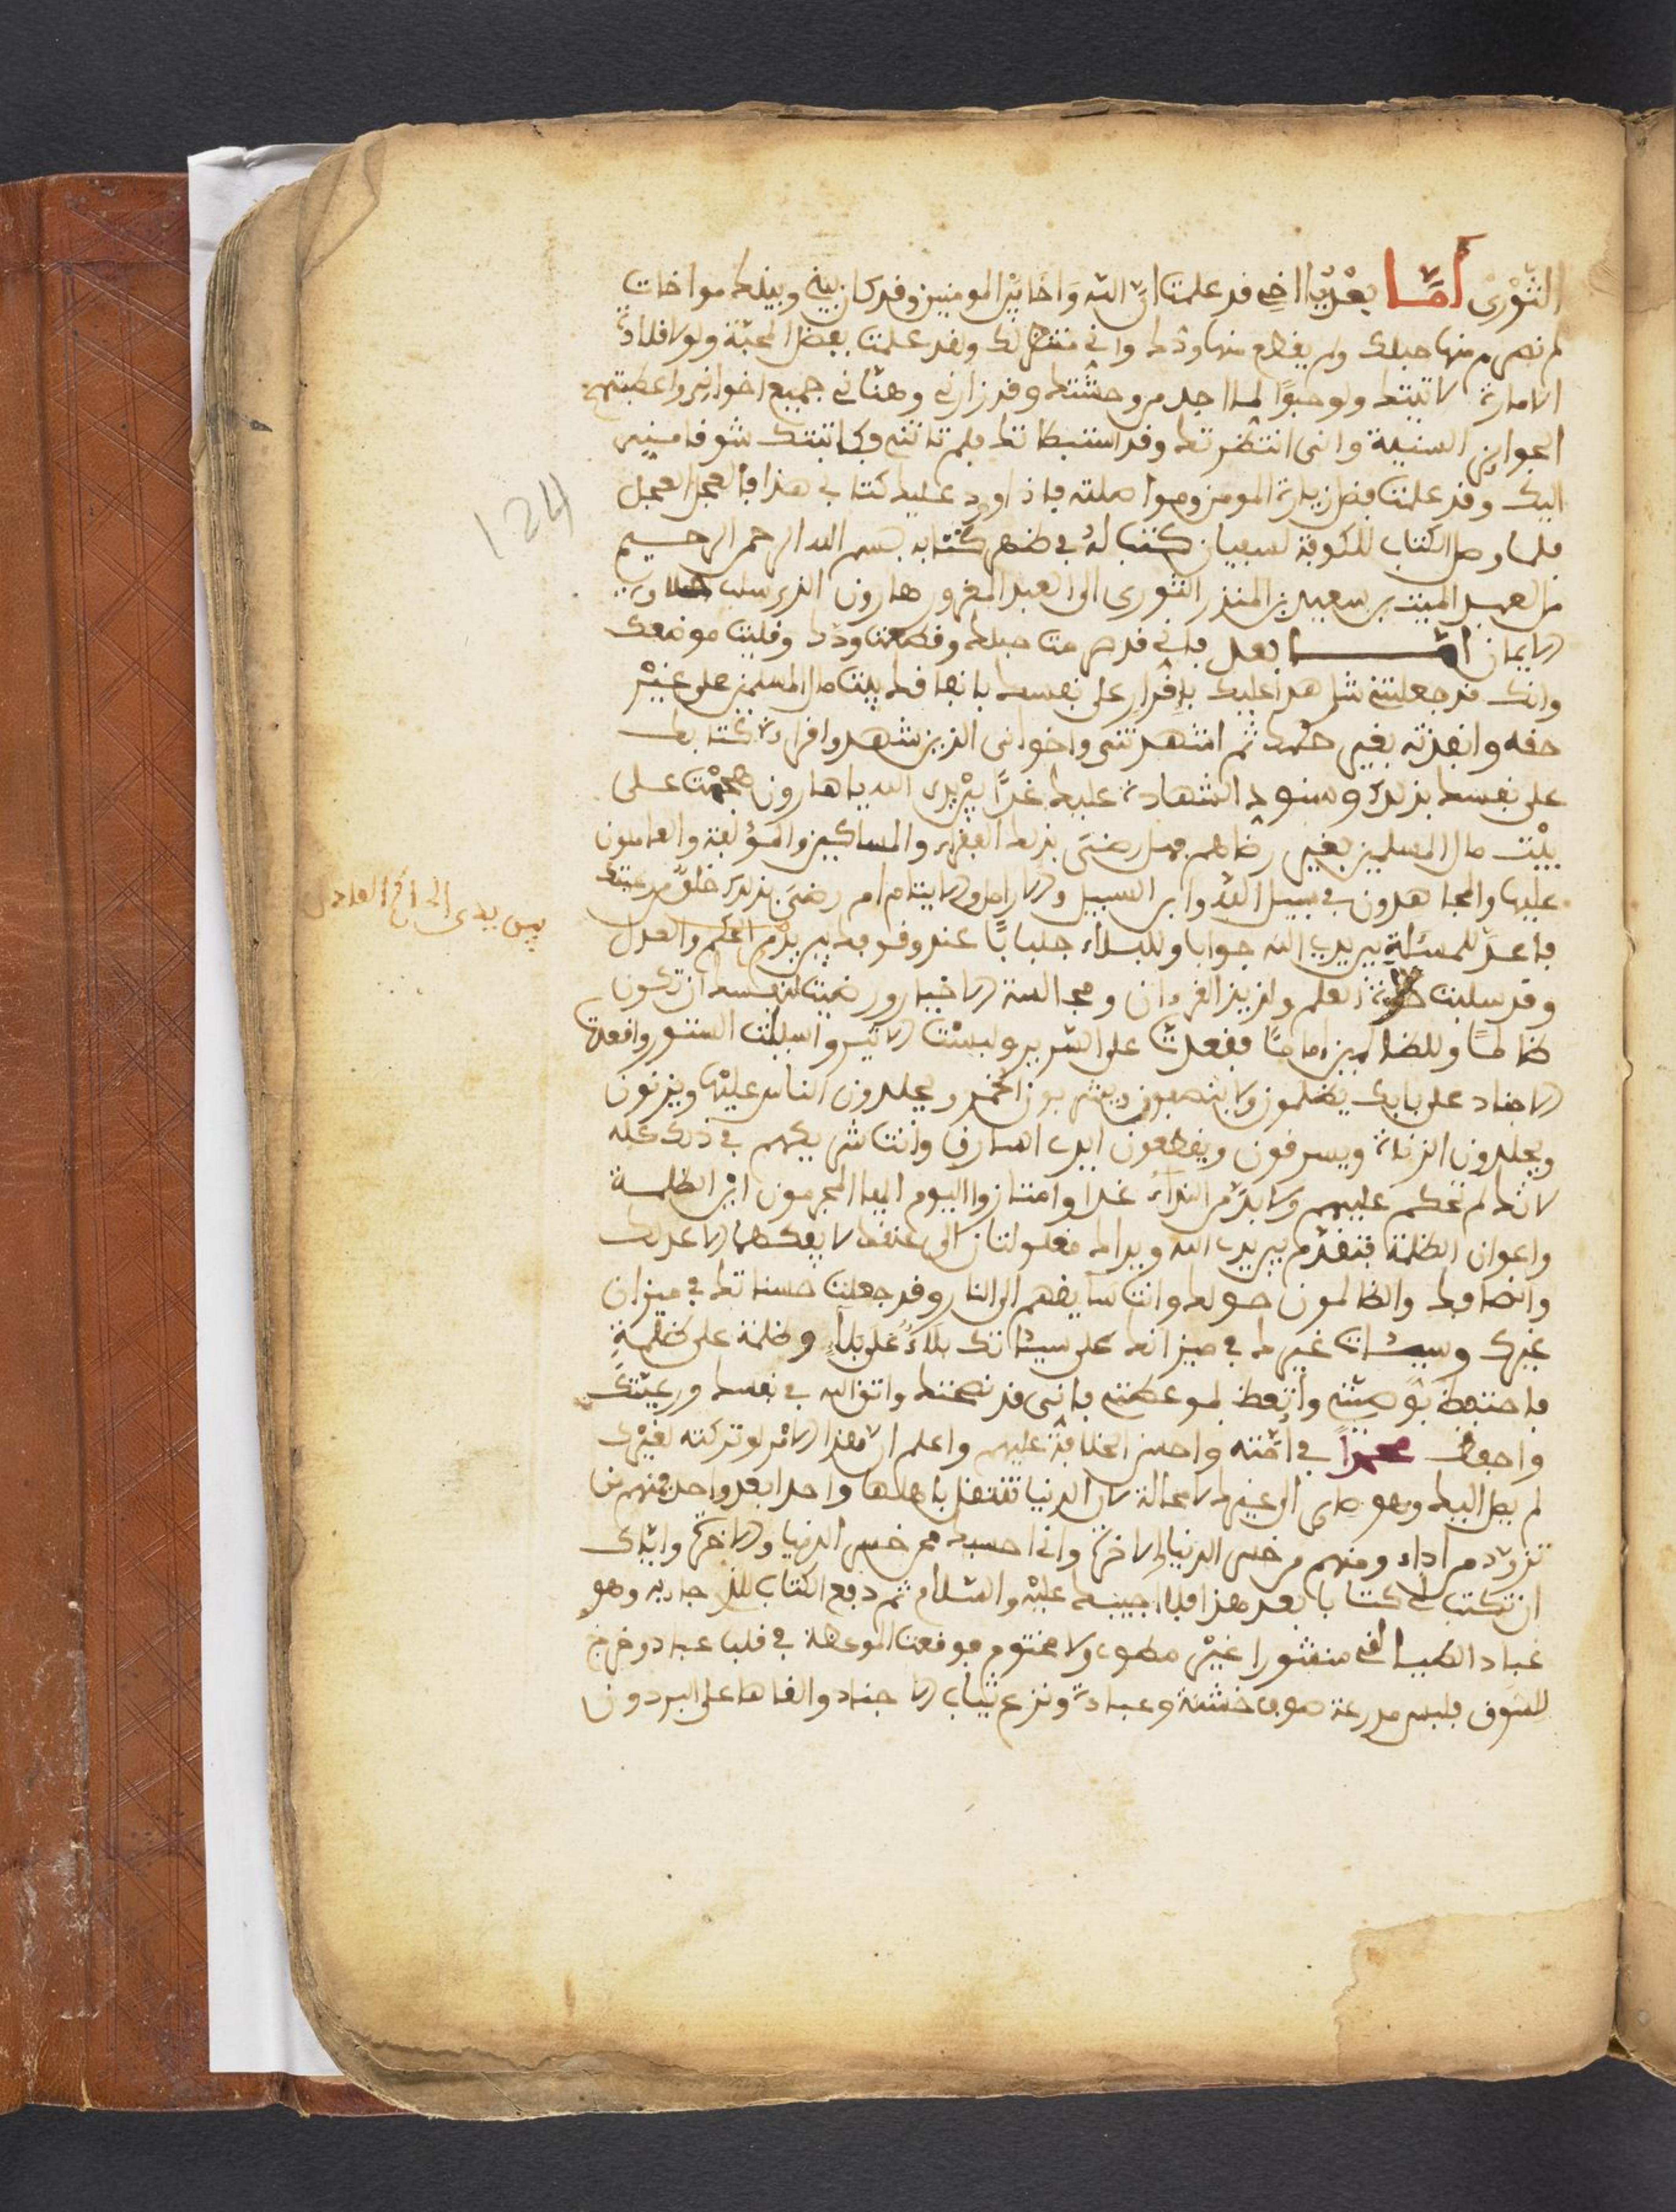 الثوري أما بعد يا اخي فقد علمت ان الله واخا بين المومنين وقد كان بيني وبينك مواخات
لم نصرم منها حبلك ولم يقطع منها ودك واني منتظر لك ولقد علمت بعض المحبة ولولا قلادة
الامارة لاتيتك ولو حبوا لما اجد من وحشتك وقد زارني وهناني جميع اخواني واعطيتهم
الجوائز السنية وانى انتظرتك وقد استبطاتك فلم تاتني وكاتبتك شوقا مني
اليك وقد علمت فضل زيارة المومن ومواصلته فاذا ورد عليك كتابي هذا فالعجل العجل
فلما وصل الكتاب للكوفة لسفيان كتب له في ظهر كتابه بسم الله الرحمن الرحيم
من العبد الميت بن سعيد بن المنذر الثورى الى العبد المغرور هارون الذي سلب حلاوة
الايمان امـــا بعد فاني قد صرمت حبلك وقطعت ودك وقليت موضعك
وانك قد جعلتني شاهدا عليك باقرار على نفسك بانفاقك بيت مال المسلمين على غير
حقه وانفذته بغير حكمه ثم اشهدتنى واخوانى الذين شهدوا قراءة كتابك
على نفسك بذلك وسنود الشهادة عليك غدا بين يدي الله يا هارون هجمت على
بيت مال المسلمين بغير رضاهم فهل رضى بذلك الفقراء والمساكين والمؤلفة والعاملون
عليها والمجاهدون في سبيل الله وابن السبيل والارامل والايتام ام رضى بذلك خلق من رعيتك
فاعد للمسئلة بين يدي الله جوابا وللبلاء جلبابا عند وقوفك بين يدي الحكم والعدل
بين يدى الحاكم العادل
وقد سلبت حلاوة العلم ولذيذ القرءان ومجالسة الاخيار ورضيت لنفسك ان تكون
ظالما وللظالمين اماما فقعدت على السرير ولبست واسبلت الستور واقعدت
الاجناد على بابك يظلمون ولا ينصفون ويشربون الخمر ويجلدون الناس عليها ويزنون
ويجلدون الزناة ويسرقون ويقطعون ايدي السارق وانت شريكهم في ذلك كله
لانك لم تحكم عليهم ولا بد من النداء غدا وامتازوا اليوم ايها المجرمون اين الظلمة
واعوان الظلمة فتقدم بين يدي الله ويداك مغلولتان الى عنقك لا يفكهما الا عدلك
وانصافك والظالمون حولك وانت سايقهم الى النار وقد جعلت حسناتك في ميزان
غيرك وسيئات غيرك في ميزانك على سيئاتك بلاء على بلاء وظلمة على ظلمة
فاحتفظ بوصيتي واتعظ بموعظتي فانى قد نصحتك واتق الله في نفسك ورعيتك
واحفظ محمدا في امته واحسن الخلافة عليهم واعلم ان هذا الامر لو تركته لغيرك
لم يصل اليك وهو صاير الى غيرك لا محالة لان الدنيا تنتقل باهلها واحدا بعد واحد فمنهم من
تزود من اداء ومنهم من خسر الدنيا والاخرة وانى احسبك ممن خسر الدنيا والاخرة واياك
ان تكتب لي كتابا بعد هذا فلا اجيبك عليه والسلام ثم دفع الكتاب للذي جاء به وهو
عباد الطيالقي منشورا غير مطوي ولا مختوم فوقعت الموعظة في قلب عباد وخرج
للسوق فلبس مدرعة صوف خشنة وعباءة ونزع ثياب الاجناد والقاها على البردون
124